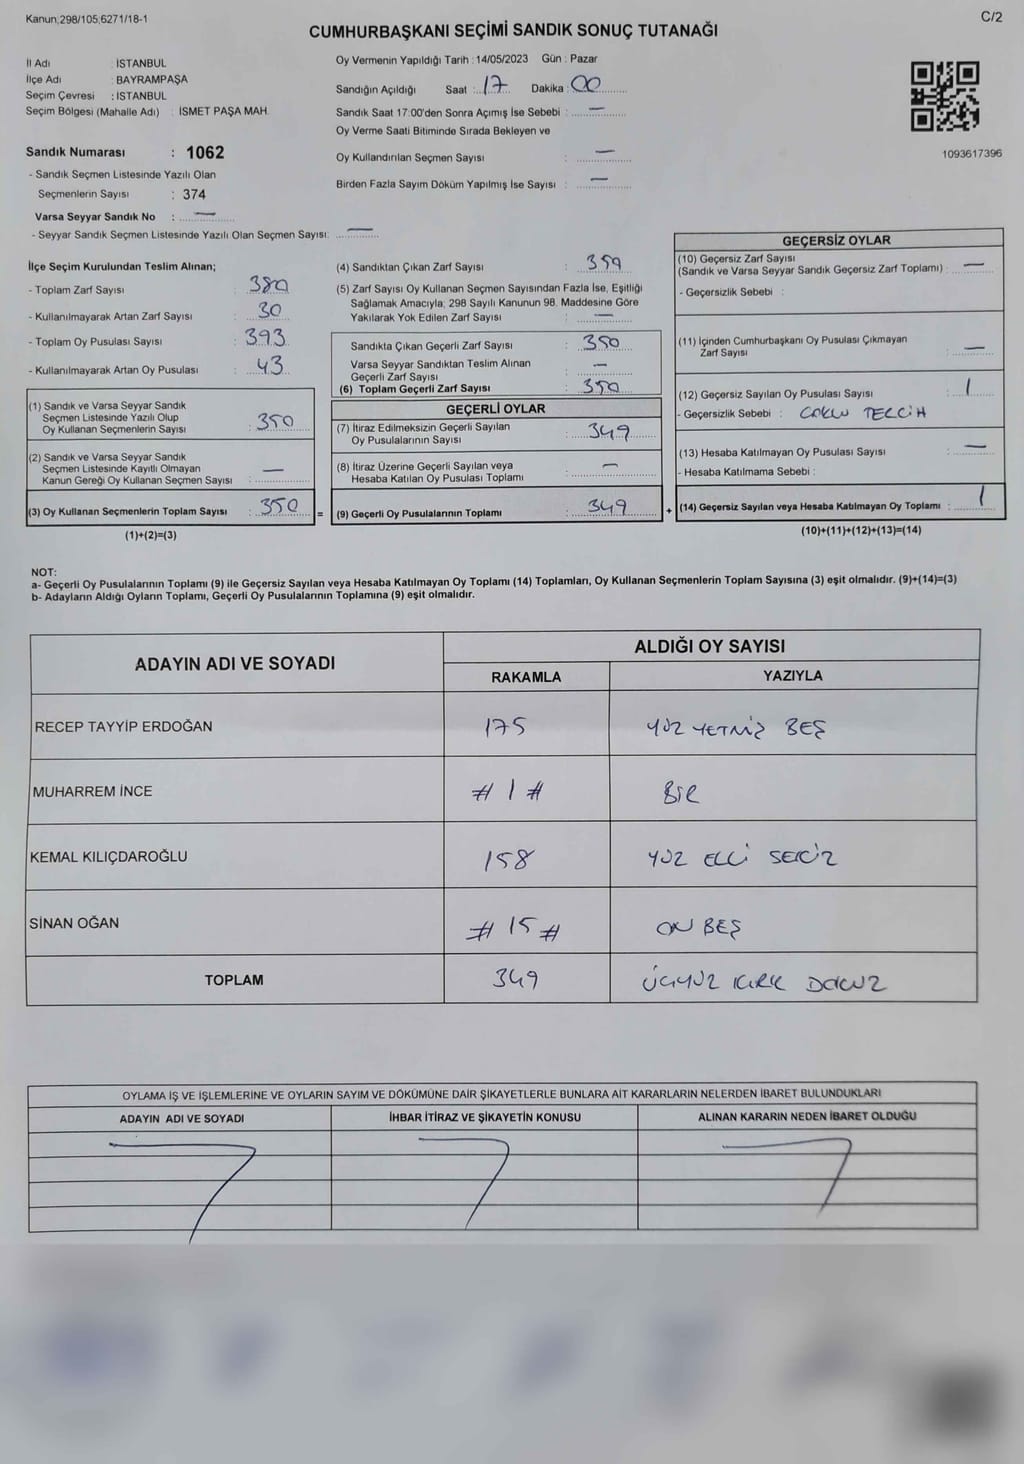 Kanun;298/105;6271/18-1
C/2
CUMHURBAŞKANI SEÇİMİ SANDIK SONUÇ TUTANAĞI
İl Adı : İSTANBUL
İlçe Adı : BAYRAMPAŞA
Seçim Çevresi : İSTANBUL
Seçim Bölgesi (Mahalle Adı) : İSMET PAŞA MAH.
Sandık Numarası : 1062
- Sandık Seçmen Listesinde Yazılı Olan
Seçmenlerin Sayısı : 374
Varsa Seyyar Sandık No : —
- Seyyar Sandık Seçmen Listesinde Yazılı Olan Seçmen Sayısı: —
Oy Vermenin Yapıldığı Tarih : 14/05/2023 Gün : Pazar
Sandığın Açıldığı Saat : 17 Dakika : 00
Sandık Saat 17:00'den Sonra Açımış İse Sebebi : —
Oy Verme Saati Bitiminde Sırada Bekleyen ve
Oy Kullandırılan Seçmen Sayısı : —
Birden Fazla Sayım Döküm Yapılmış İse Sayısı : —
1093617396
İlçe Seçim Kurulundan Teslim Alınan;
- Toplam Zarf Sayısı : 380
- Kullanılmayarak Artan Zarf Sayısı : 30
- Toplam Oy Pusulası Sayısı : 393
- Kullanılmayarak Artan Oy Pusulası : 43
(1) Sandık ve Varsa Seyyar Sandık
Seçmen Listesinde Yazılı Olup
Oy Kullanan Seçmenlerin Sayısı : 350
(2) Sandık ve Varsa Seyyar Sandık
Seçmen Listesinde Kayıtlı Olmayan
Kanun Gereği Oy Kullanan Seçmen Sayısı : —
(3) Oy Kullanan Seçmenlerin Toplam Sayısı : 350 =
(1)+(2)=(3)
(4) Sandıktan Çıkan Zarf Sayısı :
(5) Zarf Sayısı Oy Kullanan Seçmen Sayısından Fazla İse, Eşitliği
Sağlamak Amacıyla; 298 Sayılı Kanunun 98. Maddesine Göre
Yakılarak Yok Edilen Zarf Sayısı : —
Sandıkta Çıkan Geçerli Zarf Sayısı : 350
Varsa Seyyar Sandıktan Teslim Alınan
Geçerli Zarf Sayısı : —
(6) Toplam Geçerli Zarf Sayısı : 350
GEÇERLİ OYLAR
(7) İtiraz Edilmeksizin Geçerli Sayılan
Oy Pusulalarının Sayısı : 349
(8) İtiraz Üzerine Geçerli Sayılan veya
Hesaba Katılan Oy Pusulası Toplamı : —
(9) Geçerli Oy Pusulalarının Toplamı : 349 +
GEÇERSİZ OYLAR
(10) Geçersiz Zarf Sayısı
(Sandık ve Varsa Seyyar Sandık Geçersiz Zarf Toplamı) : —
- Geçersizlik Sebebi :
(11) İçinden Cumhurbaşkanı Oy Pusulası Çıkmayan
Zarf Sayısı : —
(12) Geçersiz Sayılan Oy Pusulası Sayısı : 1
- Geçersizlik Sebebi : ÇOKLU TERCİH
(13) Hesaba Katılmayan Oy Pusulası Sayısı : —
- Hesaba Katılmama Sebebi :
(14) Geçersiz Sayılan veya Hesaba Katılmayan Oy Toplamı : 1
(10)+(11)+(12)+(13)=(14)
NOT:
a- Geçerli Oy Pusulalarının Toplamı (9) ile Geçersiz Sayılan veya Hesaba Katılmayan Oy Toplamı (14) Toplamları, Oy Kullanan Seçmenlerin Toplam Sayısına (3) eşit olmalıdır. (9)+(14)=(3)
b- Adayların Aldığı Oyların Toplamı, Geçerli Oy Pusulalarının Toplamına (9) eşit olmalıdır.
ADAYIN ADI VE SOYADI
ALDIĞI OY SAYISI
RAKAMLA YAZIYLA
RECEP TAYYİP ERDOĞAN 175 YÜZ YETMİŞ BEŞ
MUHARREM İNCE # 1 # BİR
KEMAL KILIÇDAROĞLU 158 YÜZ ELLİ SEKİZ
SİNAN OĞAN # 15 # ON BEŞ
TOPLAM 349 ÜÇYÜZ KIRK DOKUZ
OYLAMA İŞ VE İŞLEMLERİNE VE OYLARIN SAYIM VE DÖKÜMÜNE DAİR ŞİKAYETLERLE BUNLARA AİT KARARLARIN NELERDEN İBARET BULUNDUKLARI
ADAYIN ADI VE SOYADI İHBAR İTİRAZ VE ŞİKAYETİN KONUSU ALINAN KARARIN NEDEN İBARET OLDUĞU